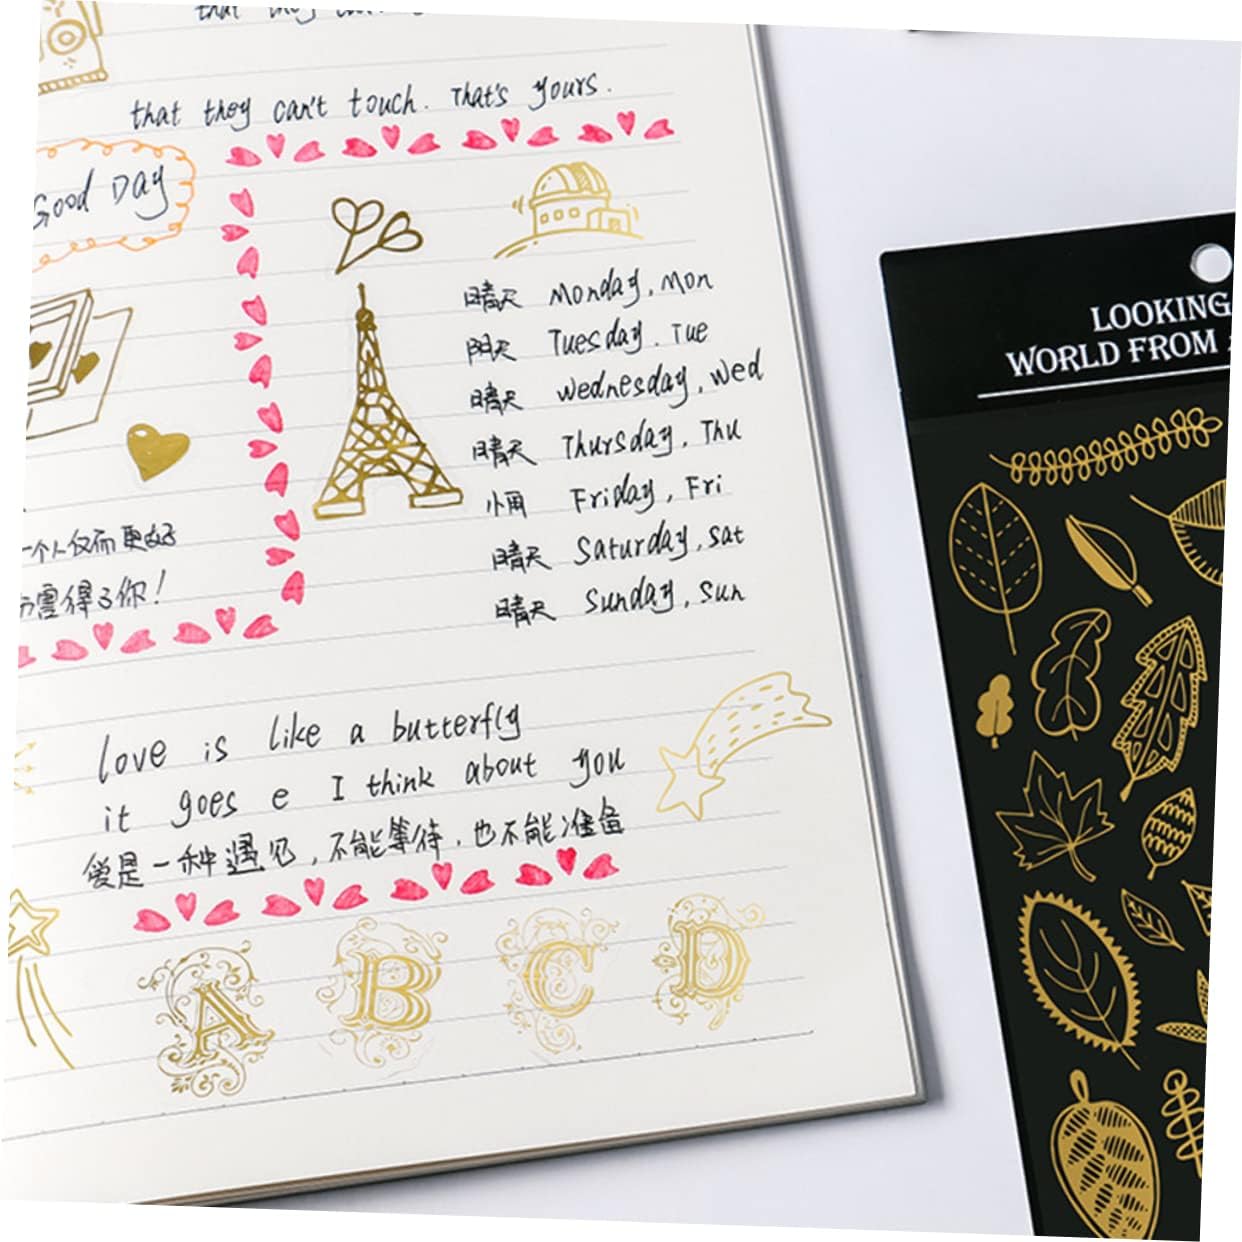 that they
that they can't touch. That's yours.
Good Day
晴天 Monday, Mon
阴天 Tuesday. Tue
晴天 Wednesday, Wed
晴天 Thursday, Thu
小雨 Friday, Fri
晴天 Saturday, Sat
晴天 Sunday, Sun
一个人仅而更好
得了你！
love is like a butterfly
it goes e I think about you
爱是一种遇见，不能等待，也不能准备
A B C D
LOOKING
WORLD FROM